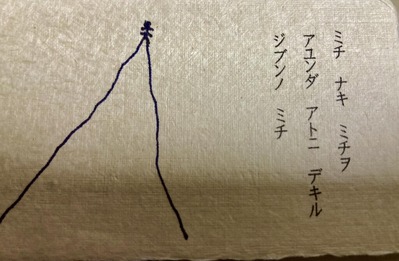 ミチ ナキ ミチヲ
アユンダ アトニ デキル
ジブンノ ミチ